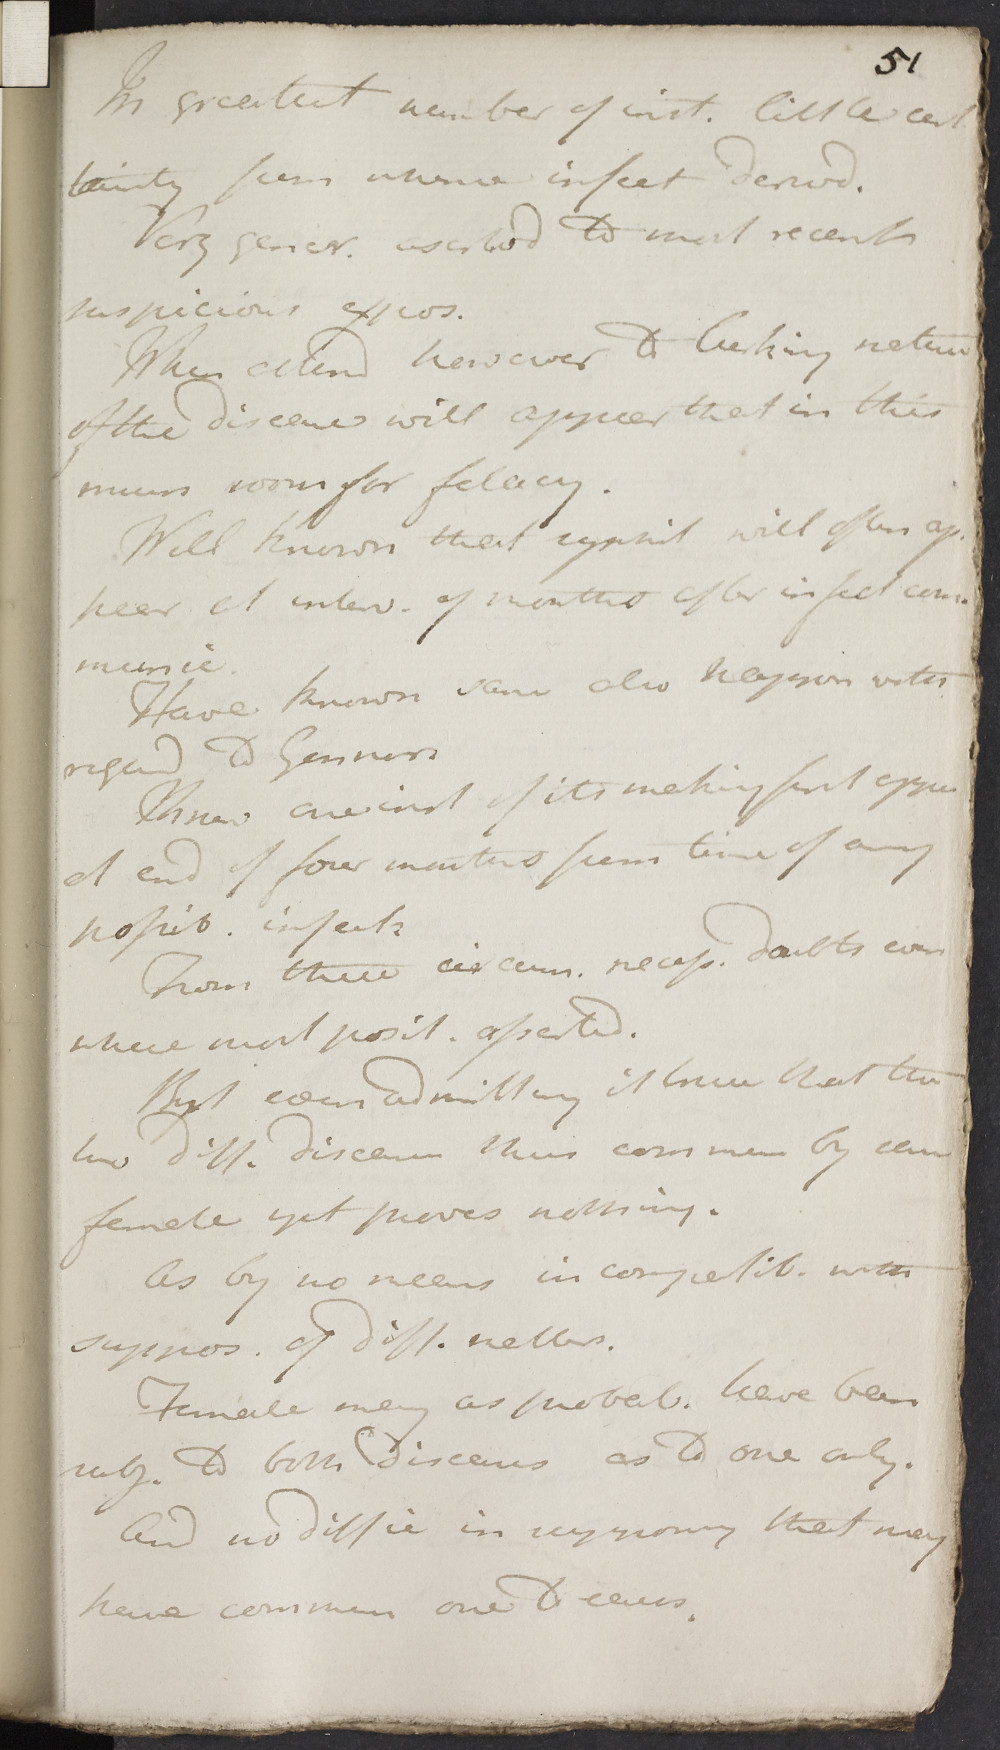 51
In greatest number of inst. little cer
tainty from whence infect derivd.
Very gener. ascribd to most recent
suspicious expos.
When attend however to lurking nature
of the disease will appear that in this
much room for falacy.
Well known that syphil will often ap.
pear at interv. of months after infect com.
munic.
Have known same also happen with
regard to Gonnorr
Knew one inst of its making first appe
at end of four months from time of any
possib. infect
From these circum. necess. doubts even
where most posit. asserted.
But even admitting it true that the
two diff. diseases thus commun by same
female yet proves nothing.
As by no means incompatib. with
suppos. of diff. matters.
Female may as probab. have been
subj. to both diseases as to one only.
And no diffic in supposing that may
have commun one to